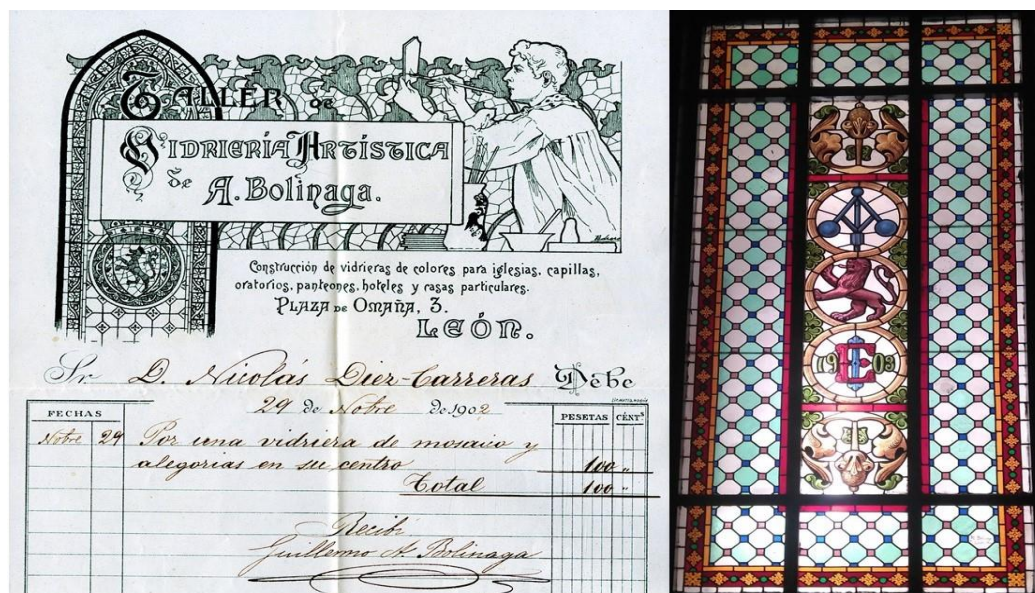 TALLER DE
VIDRIERÍA ARTÍSTICA
de A. Bolinaga.
Construcción de vidrieras de colores para iglesias, capillas,
oratorios, panteones, hoteles y casas particulares.
PLAZA DE OMAÑA, 3.
LEÓN.
Sr. D. Nicolás Diez-Carreras Debe
29 de Nobre de 1902
FECHAS PESETAS CÉNTS
Nobre 29 Por una vidriera de mosaico y
alegorias en su centro 100 "
Total 100 "
Recibí
Guillermo A. Bolinaga
1903